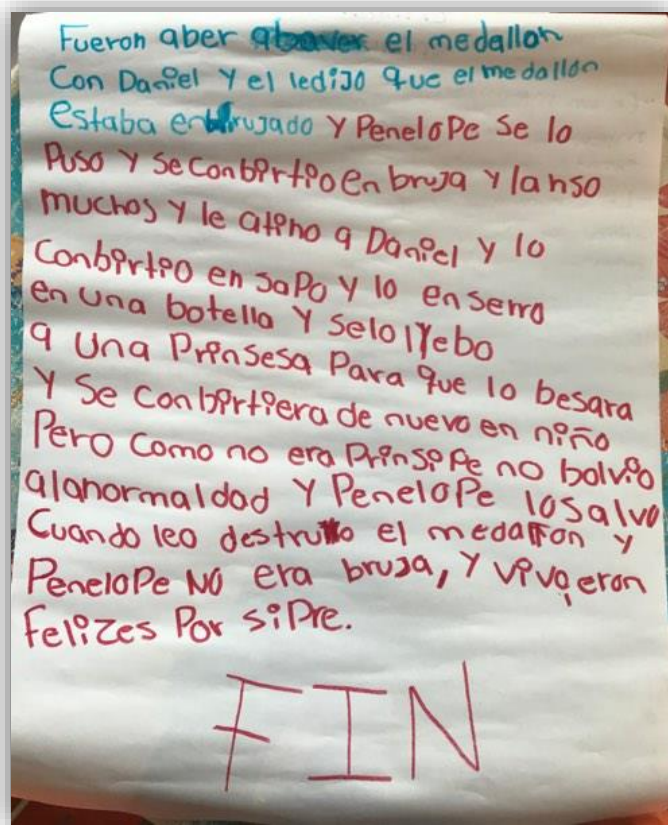 Fueron aber el medallon
Con Daniel y el ledijo que el medallon
estaba enbrujado y Penelope se lo
Puso y se conbirtio en bruja y lanso
muchos y le atino a Daniel y lo
Conbirtio en sapo y lo enserro
en una botella y selollebo
a una Prinsesa Para que lo besara
y se conbirtiera de nuevo en niño
Pero como no era Prinsipe no bolvio
alanormaldad y Penelope losalvo
Cuando leo destrullo el medallon y
Penelope NO era bruja, y vivieron
felizes Por sipre.
FIN